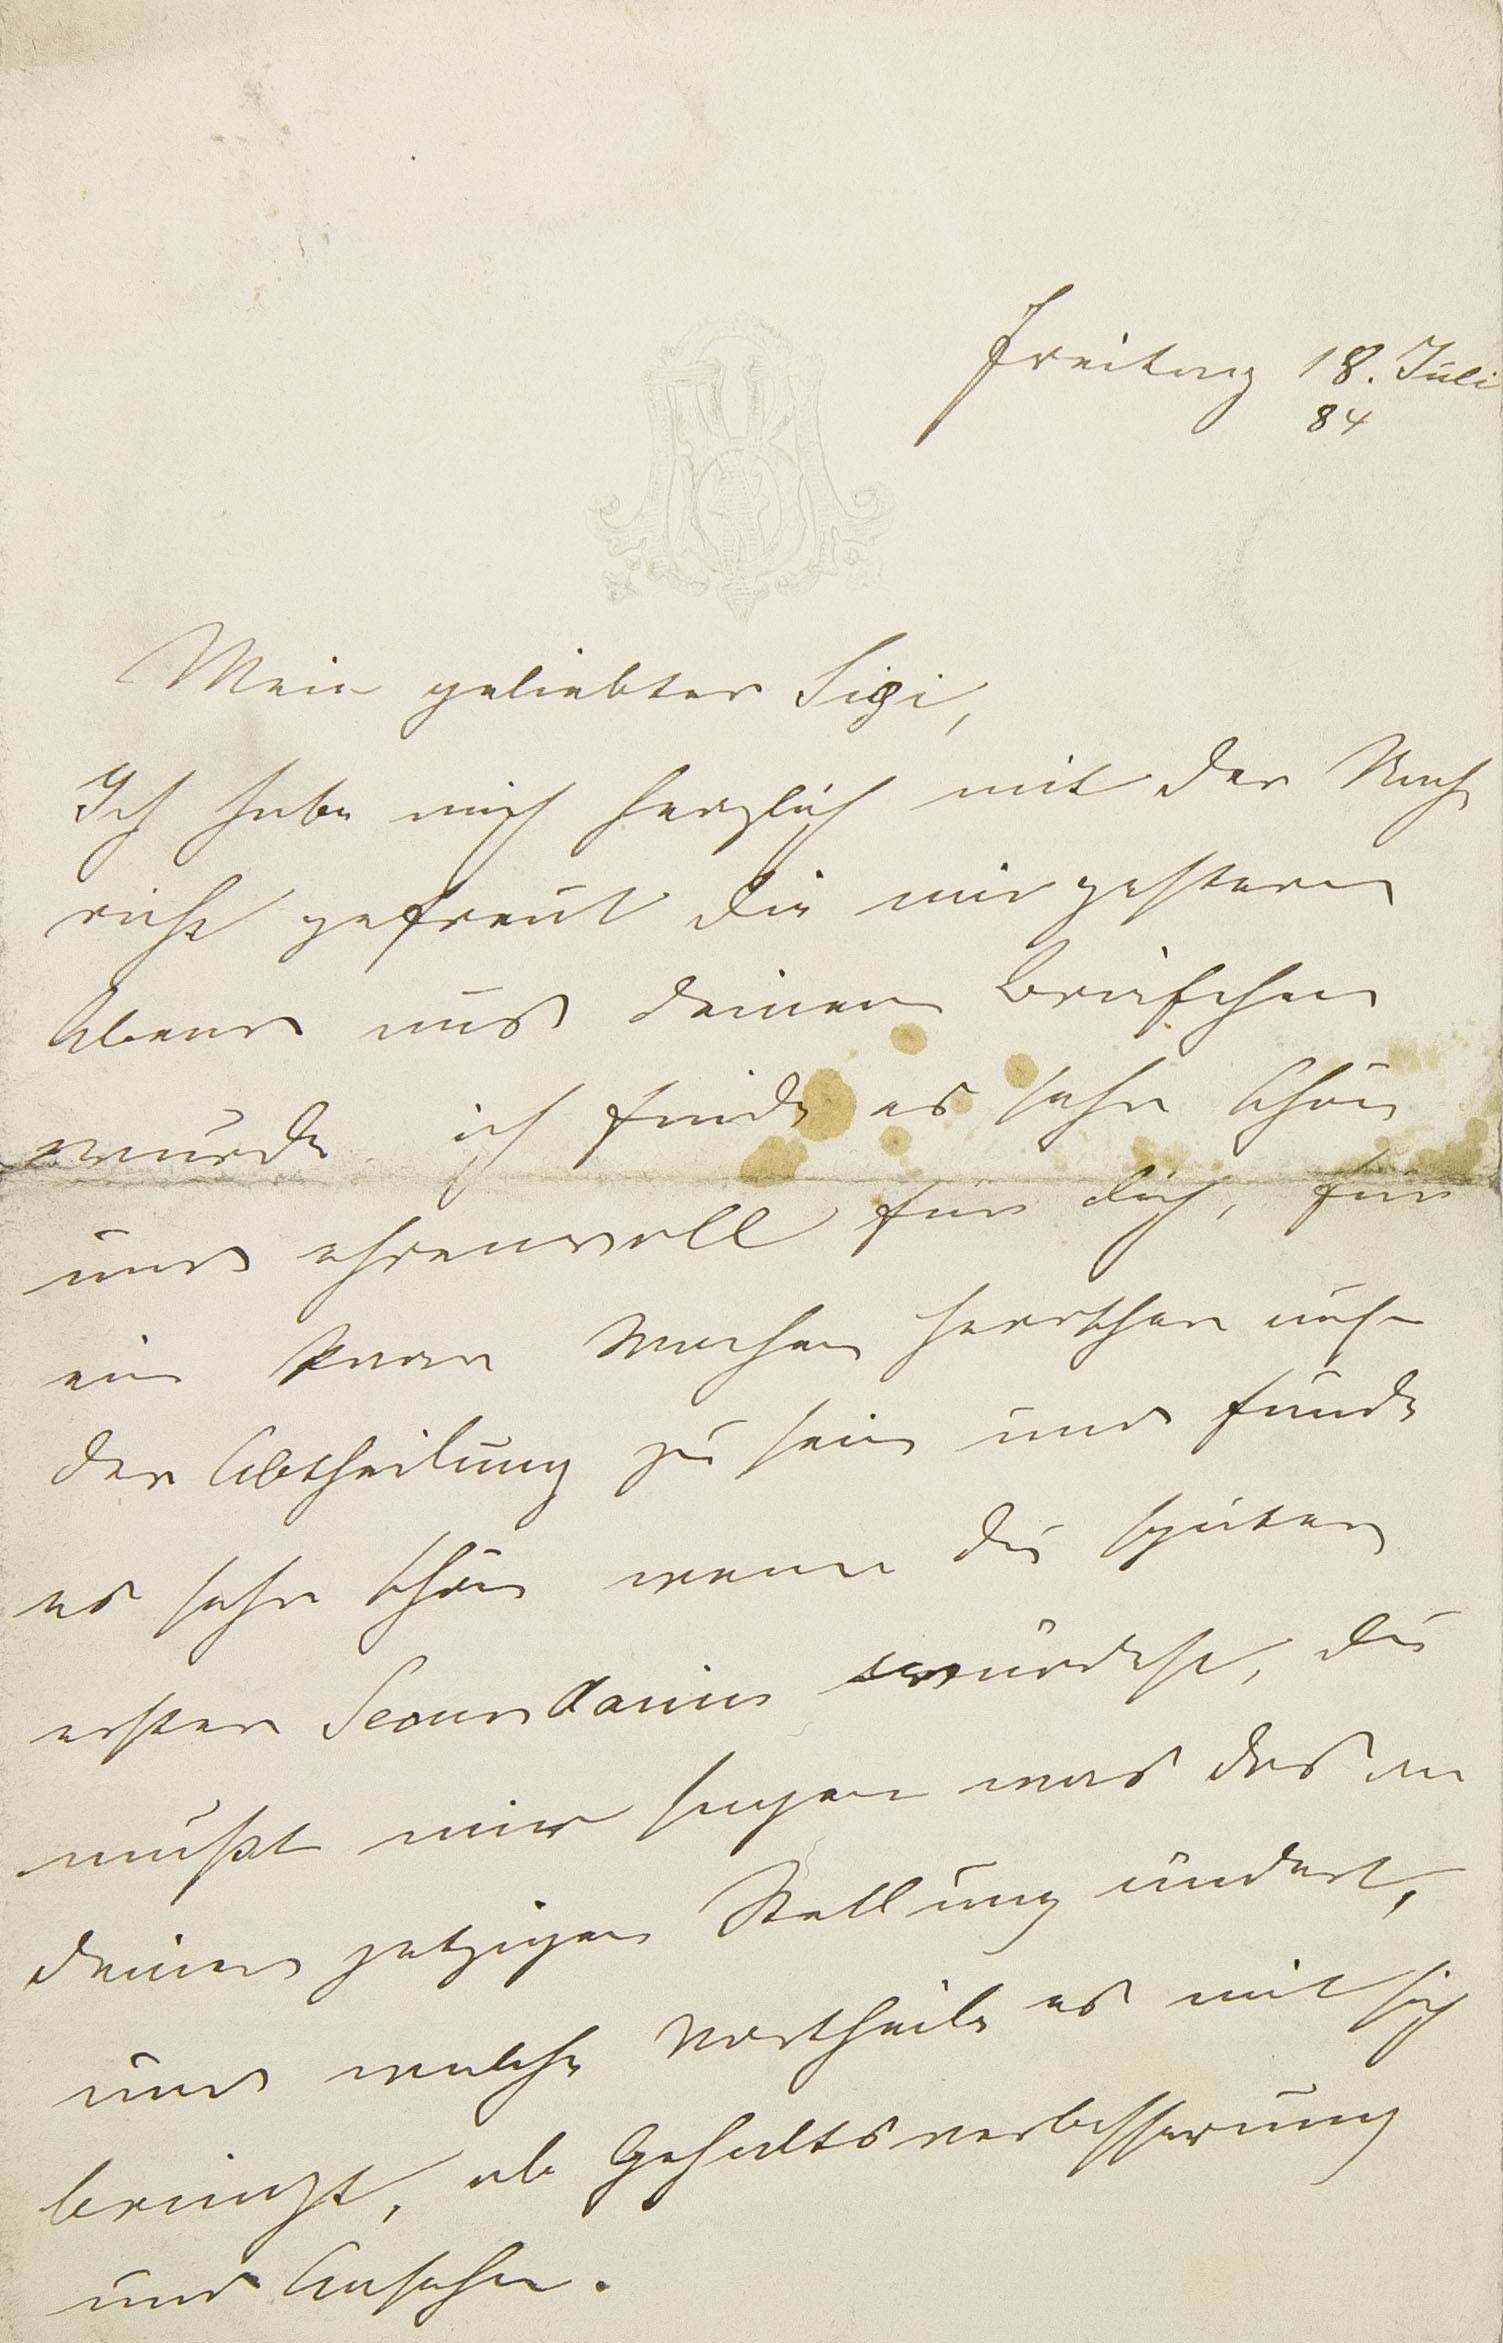 Freitag 18. Juli
84
Mein geliebter Sigi,
Ich habe mich herzlich mit der Nach
richt gefreut die mir gestern
Abend aus deinem Briefchen
wurde. ich finde es sehr schön
und ehrenvoll für dich, für
ein paar Wochen Herrscher auf
der Abtheilung zu sein und fände
es sehr schön wenn du später
erster Secundarius würdest, du
mußt mir sagen was das an
deiner jetzigen Stellung ändert,
und welche Vortheile es mit sich
bringt, ob Gehaltsverbesserung
und Ansehen.